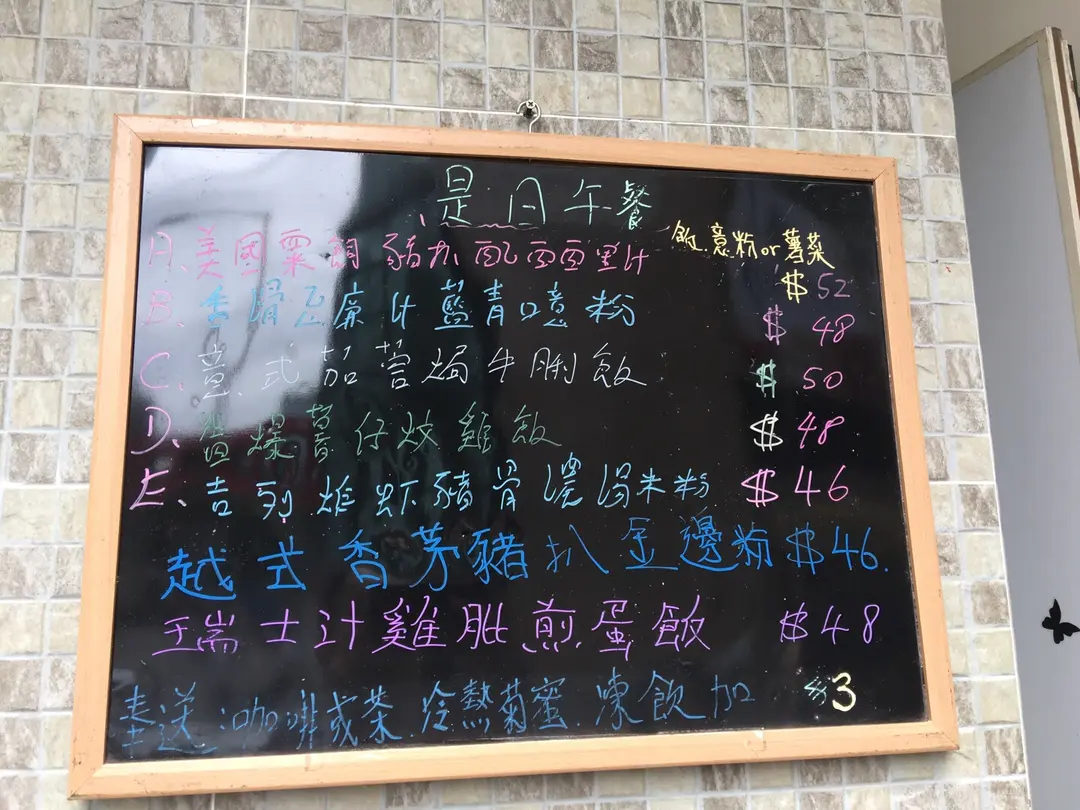 是日午餐
A、美國粟飼豬扒配汁 飯.意粉or薯菜 $52
B、香滑忌廉汁藍青口意粉 $48
C、意式茄蓉焗牛脷飯 $50
D、薯仔炆雞飯 $48
E、吉列炸虾豬骨濃湯米粉 $46
越式香茅豬扒金邊粉 $46.
瑞士汁雞肶煎蛋飯 $48
奉送:咖啡或茶.冷熱菊蜜.凍飲加 $3